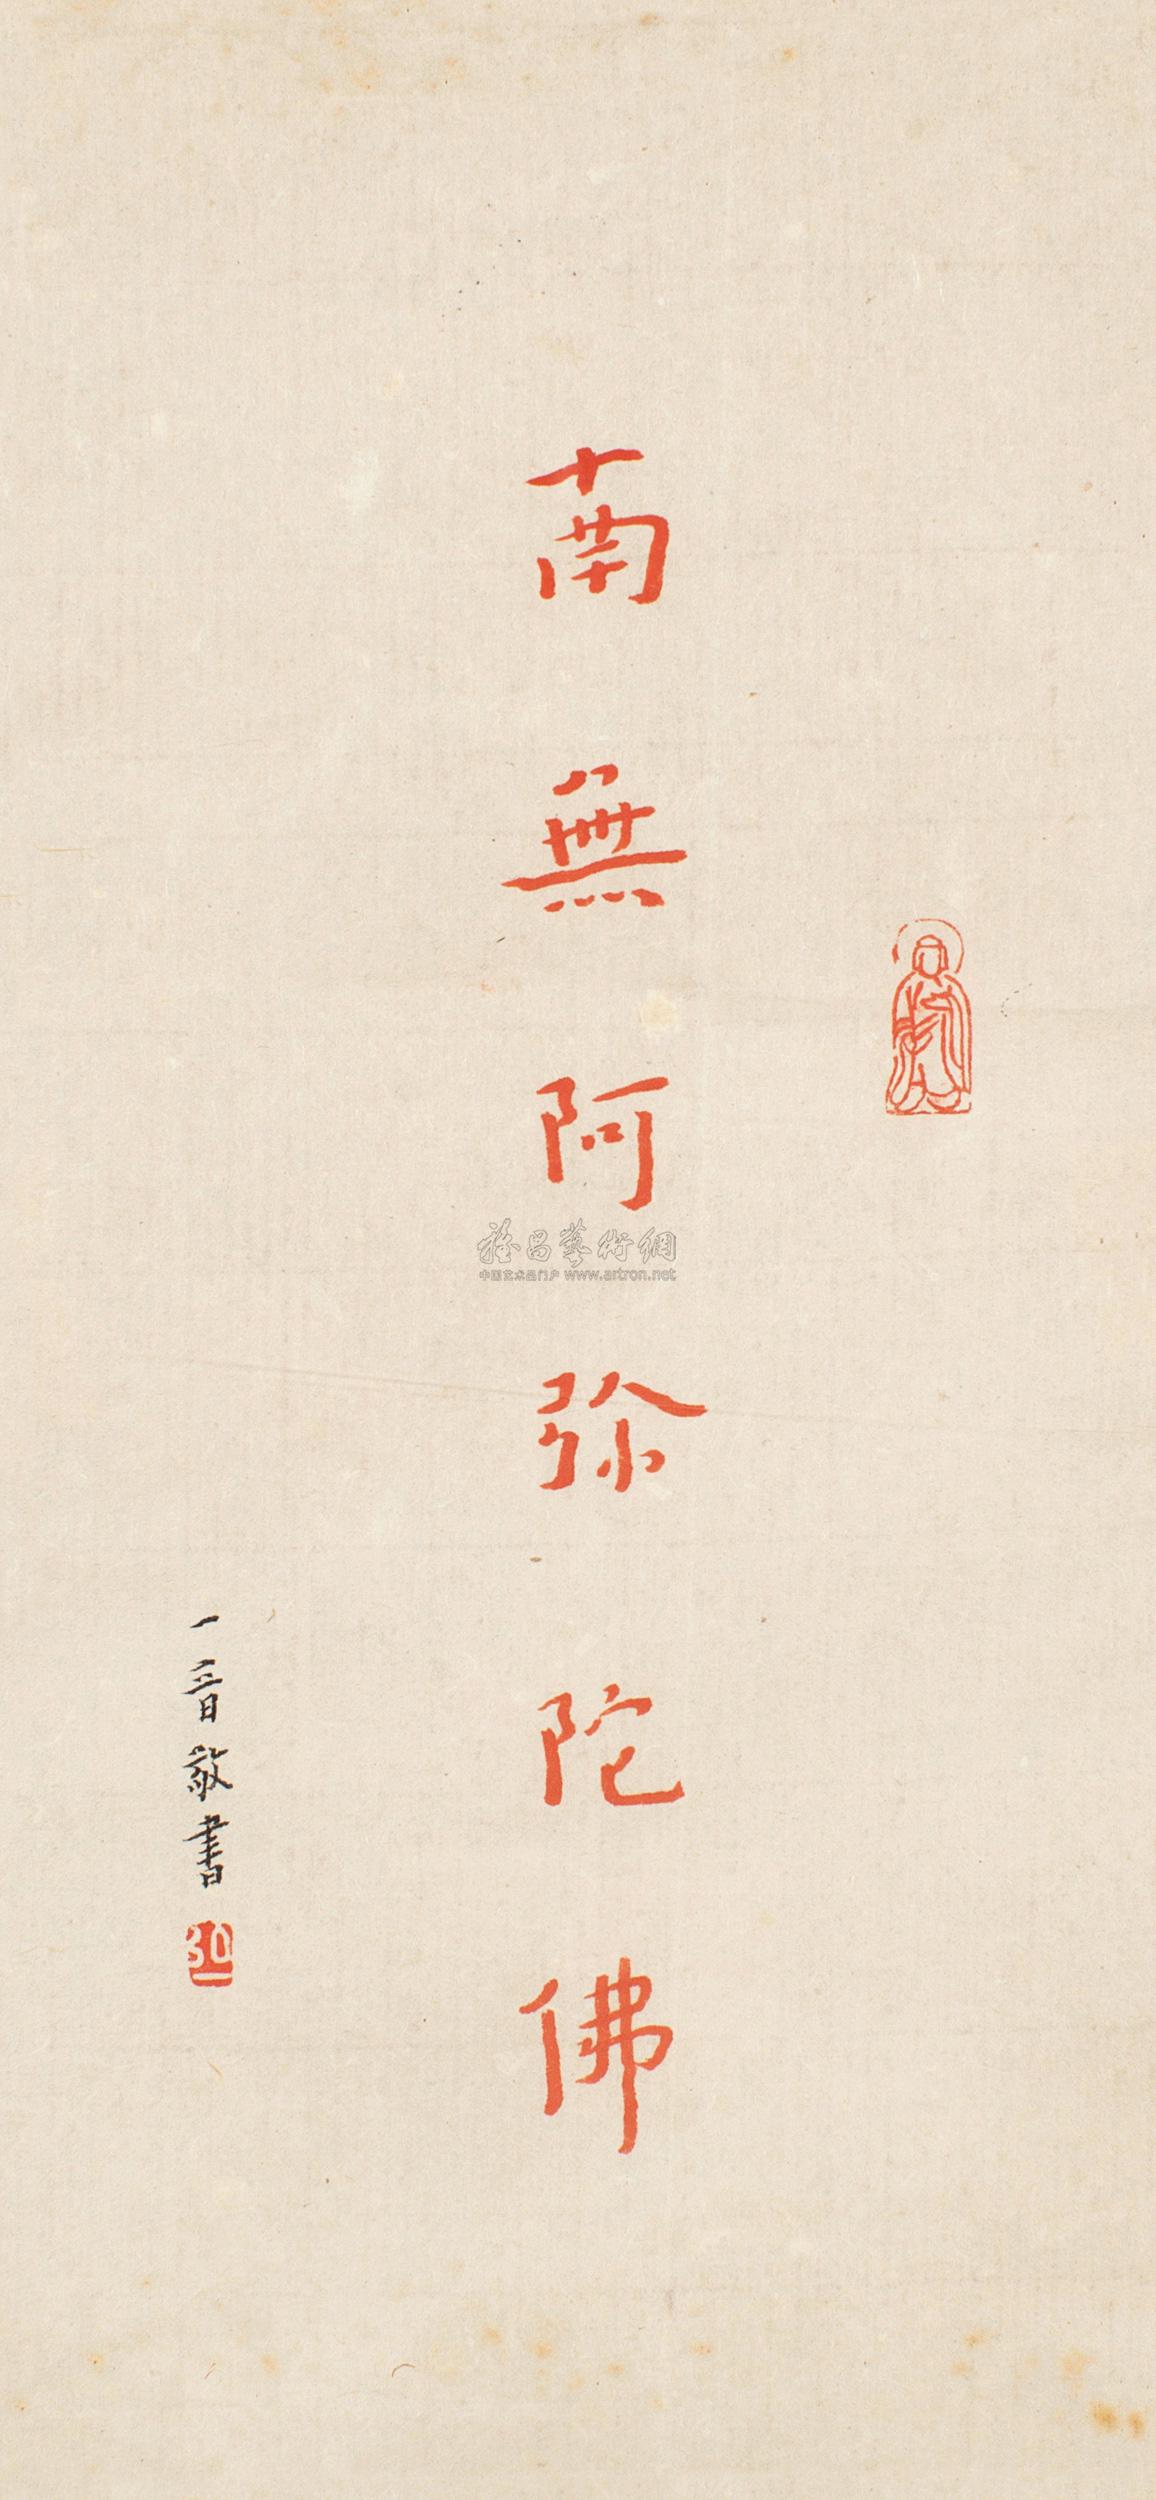 南無阿弥陀佛
一音敬書
弘一
雅昌藝術網
中国艺术品门户 www.artron.net